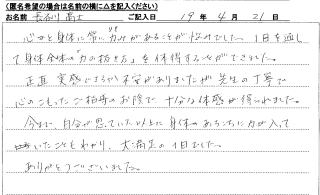 (匿名希望の場合は名前の横に△を記入ください)
お名前 長谷川 高士 ご記入日 19年 4月 21日
心や身体に常に力みがあることが悩みでした。1日を通し
て身体全体の「力の抜き方」を体得することができました。
正直、実感できるか不安がありましたが先生の丁寧で
心のこもったご指導のお陰で十分な体感が得られました。
今まで、自分が思っていた以上に身体のあちこちに力が入って
いたこともわかり、大満足の1日でした。
ありがとうございました。